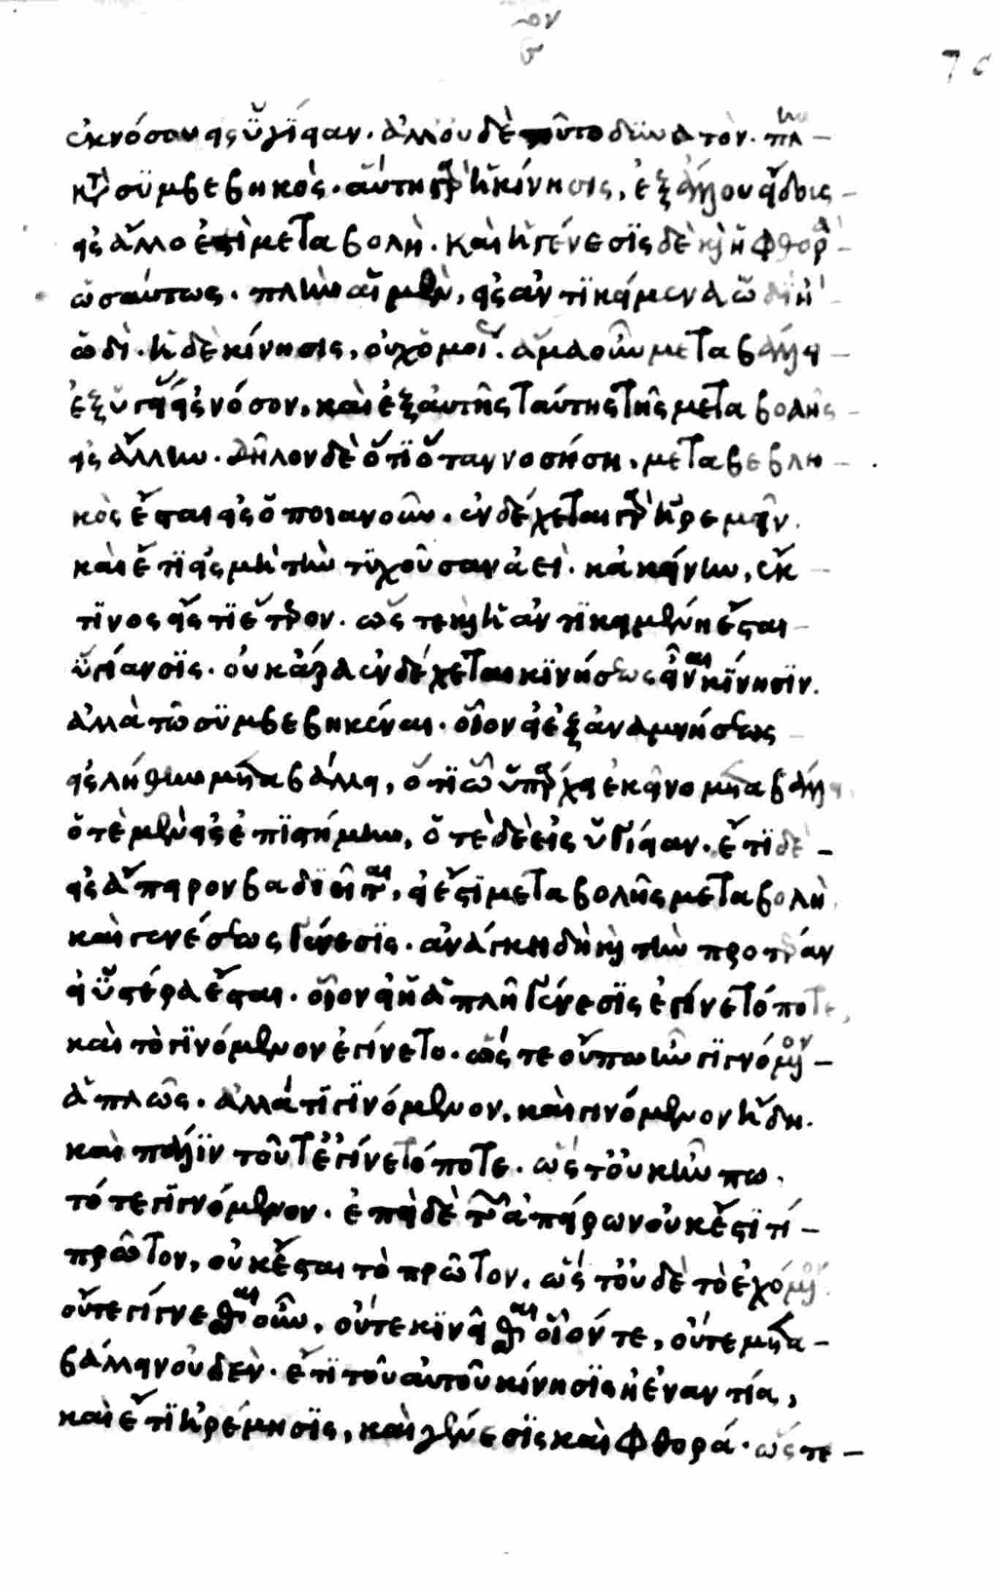 ἐκ νόσου εἰς ὑγίειαν. ἀλλ' οὐδὲ τοῦτο δυνατὸν. πλὴν
κατὰ συμβεβηκὸς. αὕτη γὰρ ἡ κίνησις, ἐξ ἄλλου εἴδους
εἰς ἄλλο ἐστὶ μεταβολὴ. καὶ ἡ γένεσις δὲ καὶ ἡ φθορὰ
ὡσαύτως. πλὴν αἱ μὲν, εἰς ἀντικείμενα ὡδὶ ἢ
ὡδὶ. ἡ δὲ κίνησις, οὐχ ὁμοί. ἅμα οὖν μεταβάλλει
ἐξ ὑγιείας εἰς νόσον, καὶ ἐξ αὐτῆς ταύτης τῆς μεταβολῆς
εἰς ἄλλην. δῆλον δὲ ὅτι ὅταν νοσήσῃ, μεταβεβλη
κὸς ἔσται εἰς ὁποιανοῦν. ἐνδέχεται γὰρ ἠρεμεῖν.
καὶ ἔτι εἰς μὴ τὴν τυχοῦσαν ἀεὶ. κἀκείνην, ἔκ
τινος εἴς τι ἕτερον. ὥς τε καὶ ἡ ἀντικειμένη ἔσται
ὑγίανσις. οὐκ ἄρα ἐνδέχεται κινήσεως εἶναι κίνησιν.
ἀλλὰ τῶ συμβεβηκέναι. οἷον εἰ ἐξ ἀναμνήσεως
εἰς λήθην μεταβάλλει, ὅτι ὧ ὑπάρχει ἐκεῖνο μεταβάλλει,
ὁτὲ μὲν εἰς ἐπιστήμην, ὁτὲ δὲ εἰς ὑγίειαν. ἔτι δὲ
εἰς ἄπειρον βαδιεῖται, εἰ ἔστι μεταβολῆς μεταβολὴ
καὶ γενέσεως γένεσις. ἀνάγκη δὴ καὶ τὴν προτέραν
εἰ ὑστέρα ἔσται. οἷον εἰ ἡ ἁπλῆ γένεσις ἐγίνετό ποτε,
καὶ τὸ γινόμενον ἐγίνετο. ὥς τε οὔπω ἦν γιγνόμενον
ἁπλῶς. ἀλλά τι γινόμενον, καὶ γινόμενον ἤδη.
καὶ πάλιν τοῦτ' ἐγίνετό ποτε. ὥς τ' οὐκ ἦν πω
τό τε γιγνόμενον. ἐπεὶ δὲ τῶν ἀπείρων οὐκ ἔστι τί
πρῶτον, οὐκ ἔσται τὸ πρῶτον. ὥς τ' οὐδὲ τὸ ἐχόμενον.
οὔτε γίγνεσθαι οὖν, οὔτε κινεῖσθαι οἷόν τε, οὔτε μετα
βάλλειν οὐδὲν. ἔτι τοῦ αὐτοῦ κίνησις ἡ ἐναντία,
καὶ ἔτι ἠρέμησις, καὶ γένεσις καὶ φθορά. ὥς τε